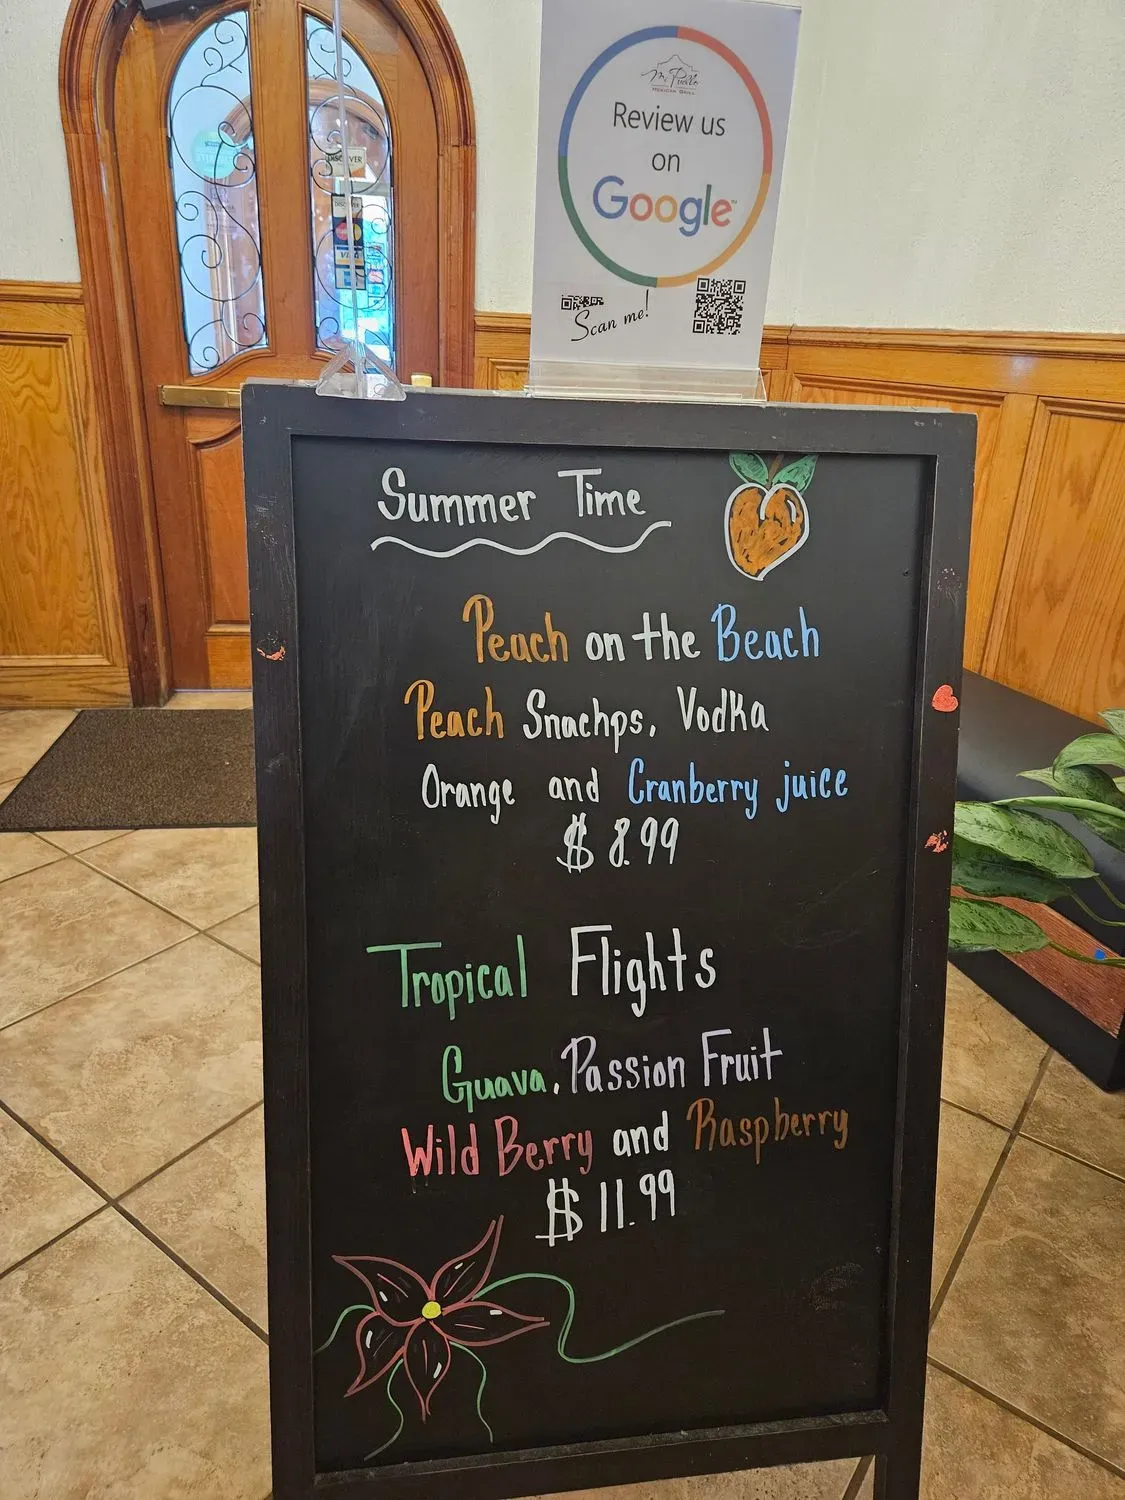 Mi Pueblo
MEXICAN GRILL
Review us
on
Google
Scan me!
DISCOVER
VISA
Summer Time
Peach on the Beach
Peach Snachps, Vodka
Orange and Cranberry juice
$ 8.99
Tropical Flights
Guava, Passion Fruit
Wild Berry and Raspberry
$ 11.99